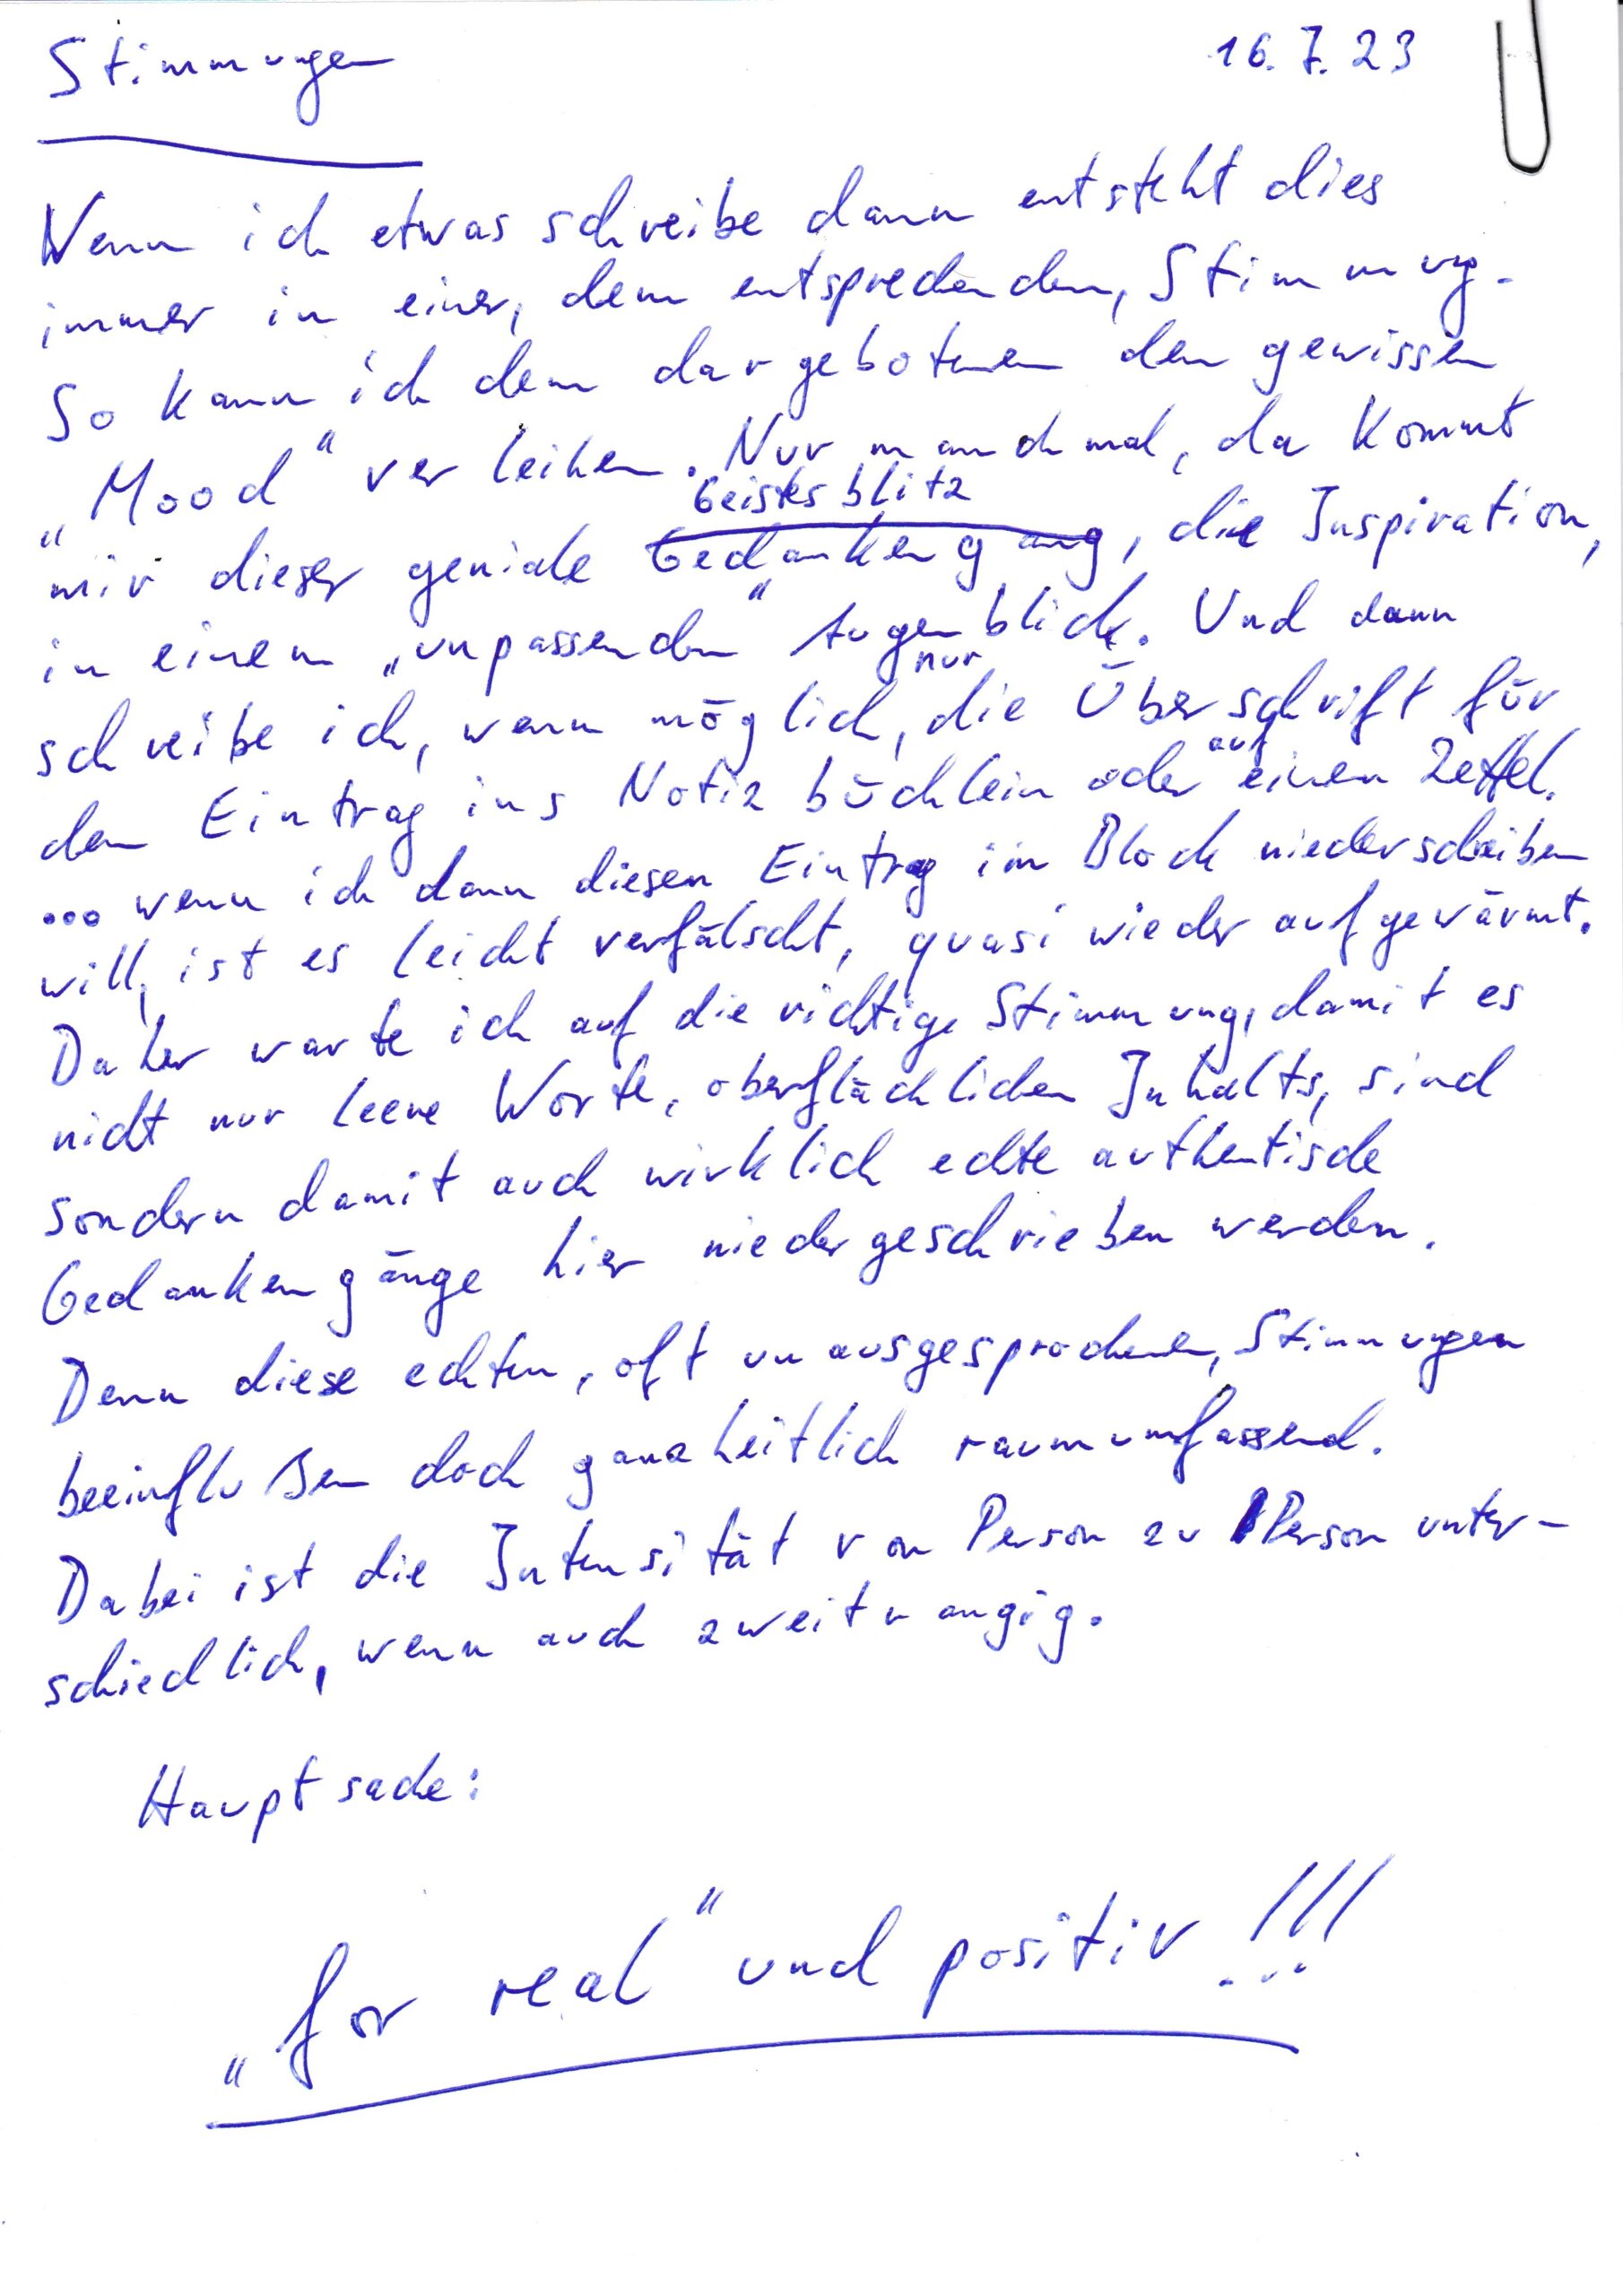 Stimmungen 16.7.23
Wenn ich etwas schreibe dann entsteht dies
immer in einer, dem entsprechenden, Stimmung.
So kann ich dem dargebotenen den gewissen
„Mood" verleihen. Nur manchmal, da kommt
Geistesblitz
mir dieser geniale Gedankengang, die Inspiration,
in einem „unpassenden" Augenblick. Und dann
nur
schreibe ich, wenn möglich, die Überschrift für
auf
den Eintrag ins Notizbüchlein oder einen Zettel.
... wenn ich dann diesen Eintrag im Block niederschreiben
will, ist es leicht verfälscht, quasi wieder aufgewärmt.
Daher warte ich auf die richtige Stimmung, damit es
nicht nur leere Worte, oberflächlichen Inhalts, sind
sondern damit auch wirklich echte authentische
Gedankengänge hier niedergeschrieben werden.
Denn diese echten, oft unausgesprochenen, Stimmungen
beeinflußen doch ganzheitlich raumumfassend.
Dabei ist die Intensität von Person zu Person unter-
schiedlich, wenn auch zweitrangig.
Hauptsache:
„for real" und positiv!!!